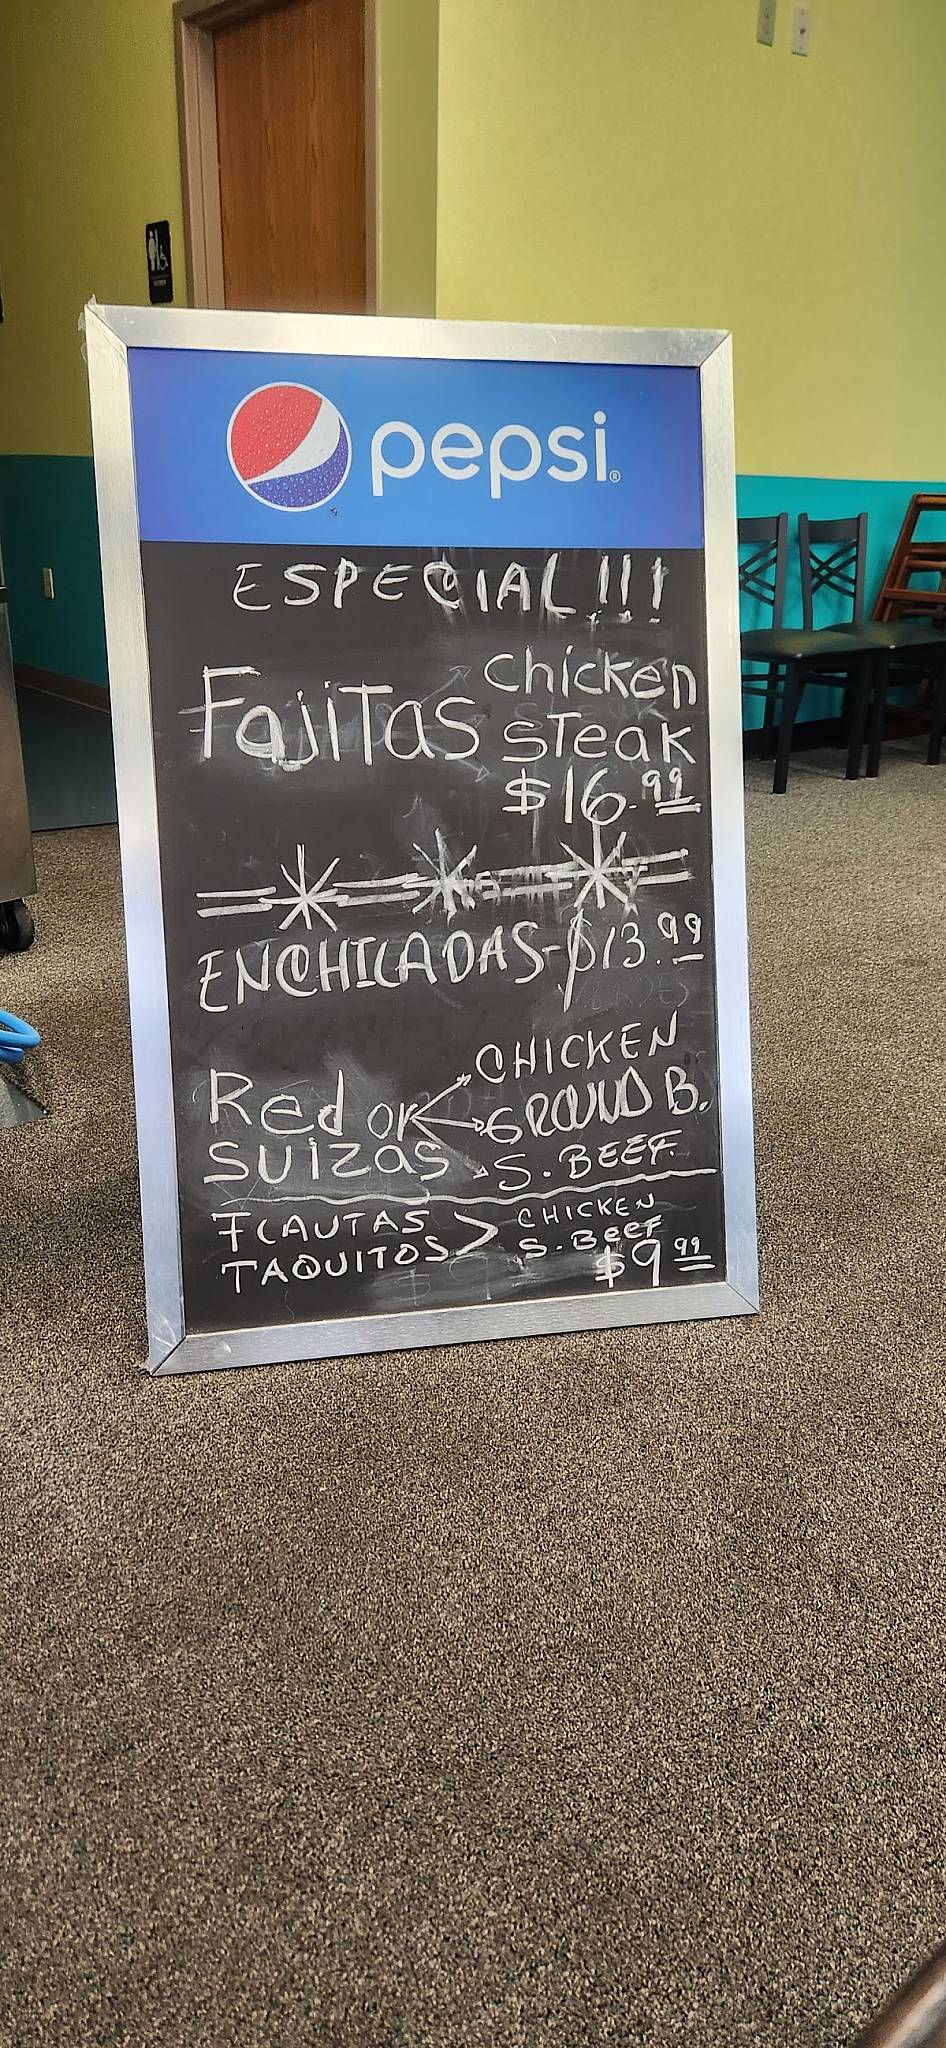 pepsi®
ESPECIAL!!!
Fajitas Chicken
Steak
$16.99
ENCHILADAS-$13.99
Red or
SUIZAS
CHICKEN
GROUND B.
S. BEEF.
FLAUTAS
TAQUITOS
CHICKEN
S. BEEF
$9.99